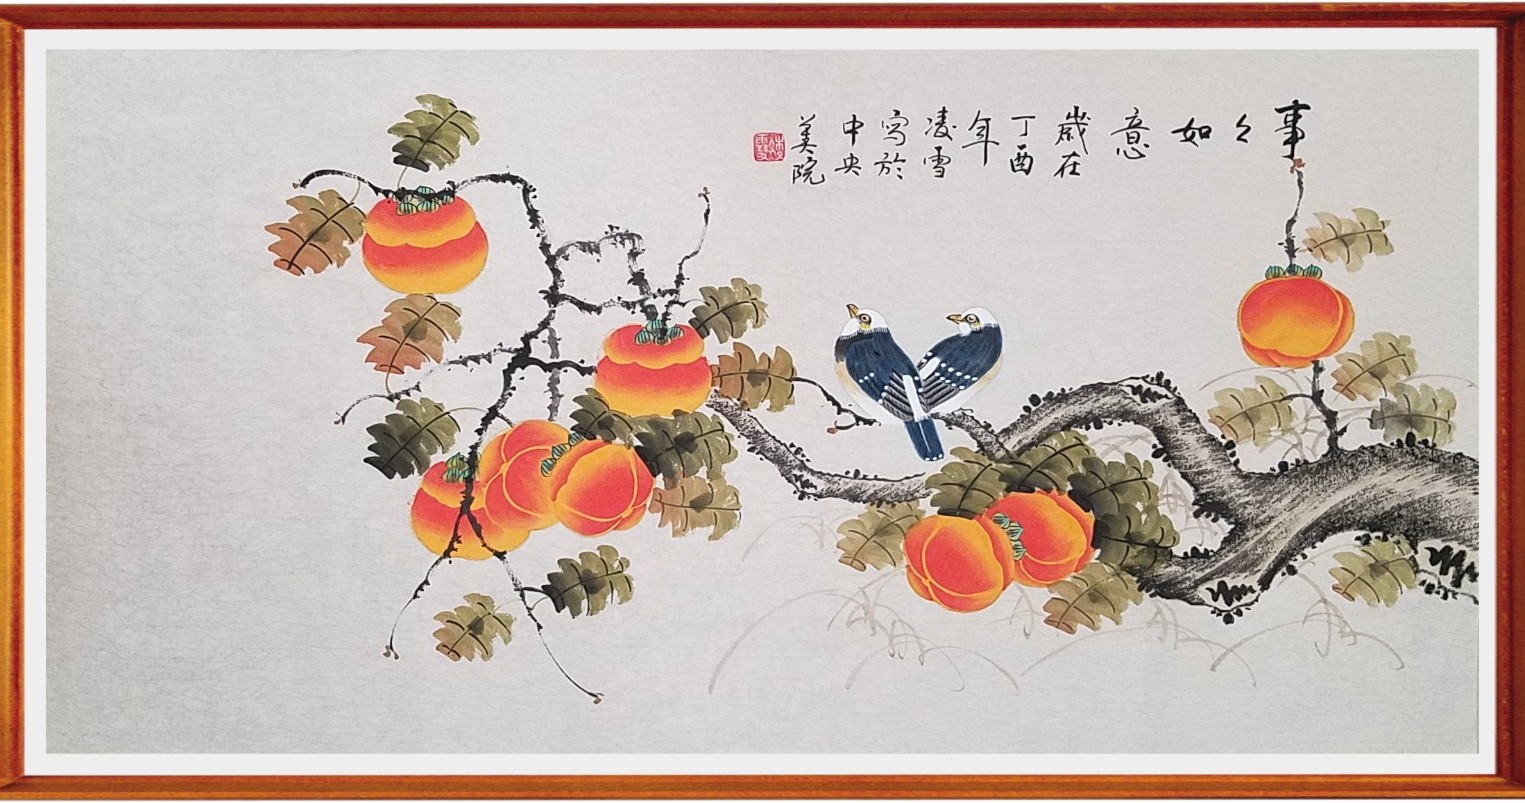 事
々
如
意
歲在
丁酉
年
凌雪
写於
中央
美院